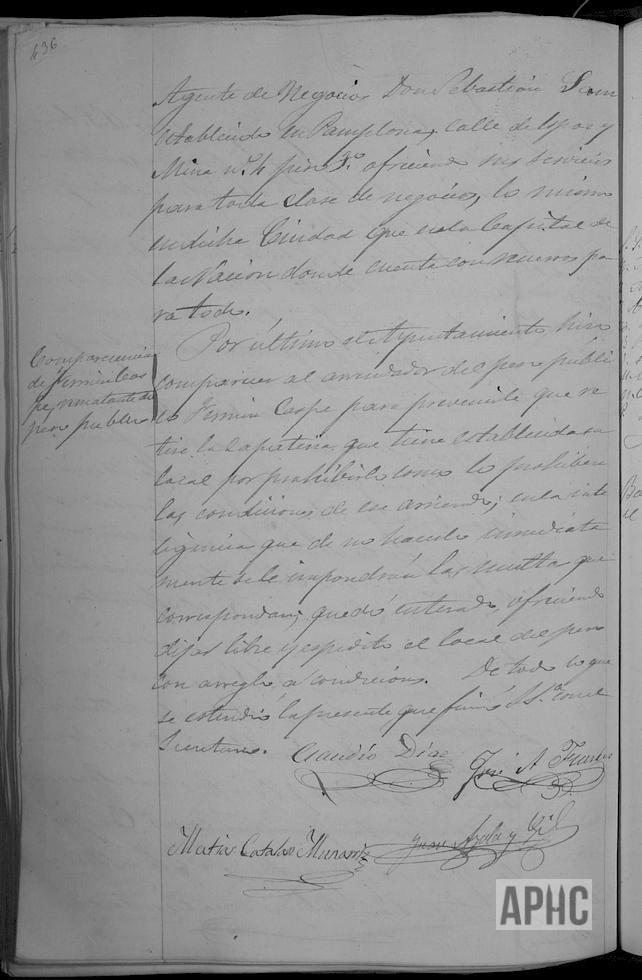 436
Agente de Negocios Don Sebastián
establecido en Pamplona, calle de Espoz y
Mina nº 4 piso 3º. ofreciendo sus servicios
para toda clase de negocios, lo mismo
en dicha Ciudad que en la Capital de
la Nación donde cuenta con
ra todo.
Por último el Ayuntamiento hizo
comparecer al arrendador del peso publi
co Fermin Caspe para prevenirle que re
tire la zapateria que tiene establecida en
local por prohibirlo como lo prohiben
las condiciones de ese arriendo; en la inte
ligencia que de no hacerlo inmediata
mente se le impondrán las multas que
correspondan; quedó enterado, ofreciendo
dejar libre y espedito el local del peso
con arreglo a condiciones. De todo lo que
se estendió la presente que firmó S.Sª. con el
Secretario.
Comparecencia
de Fermin Cas
pe, rematante del
peso publico
Claudio Diaz
José A
Matias Catalan
Juan Ayala y Gil
APHC